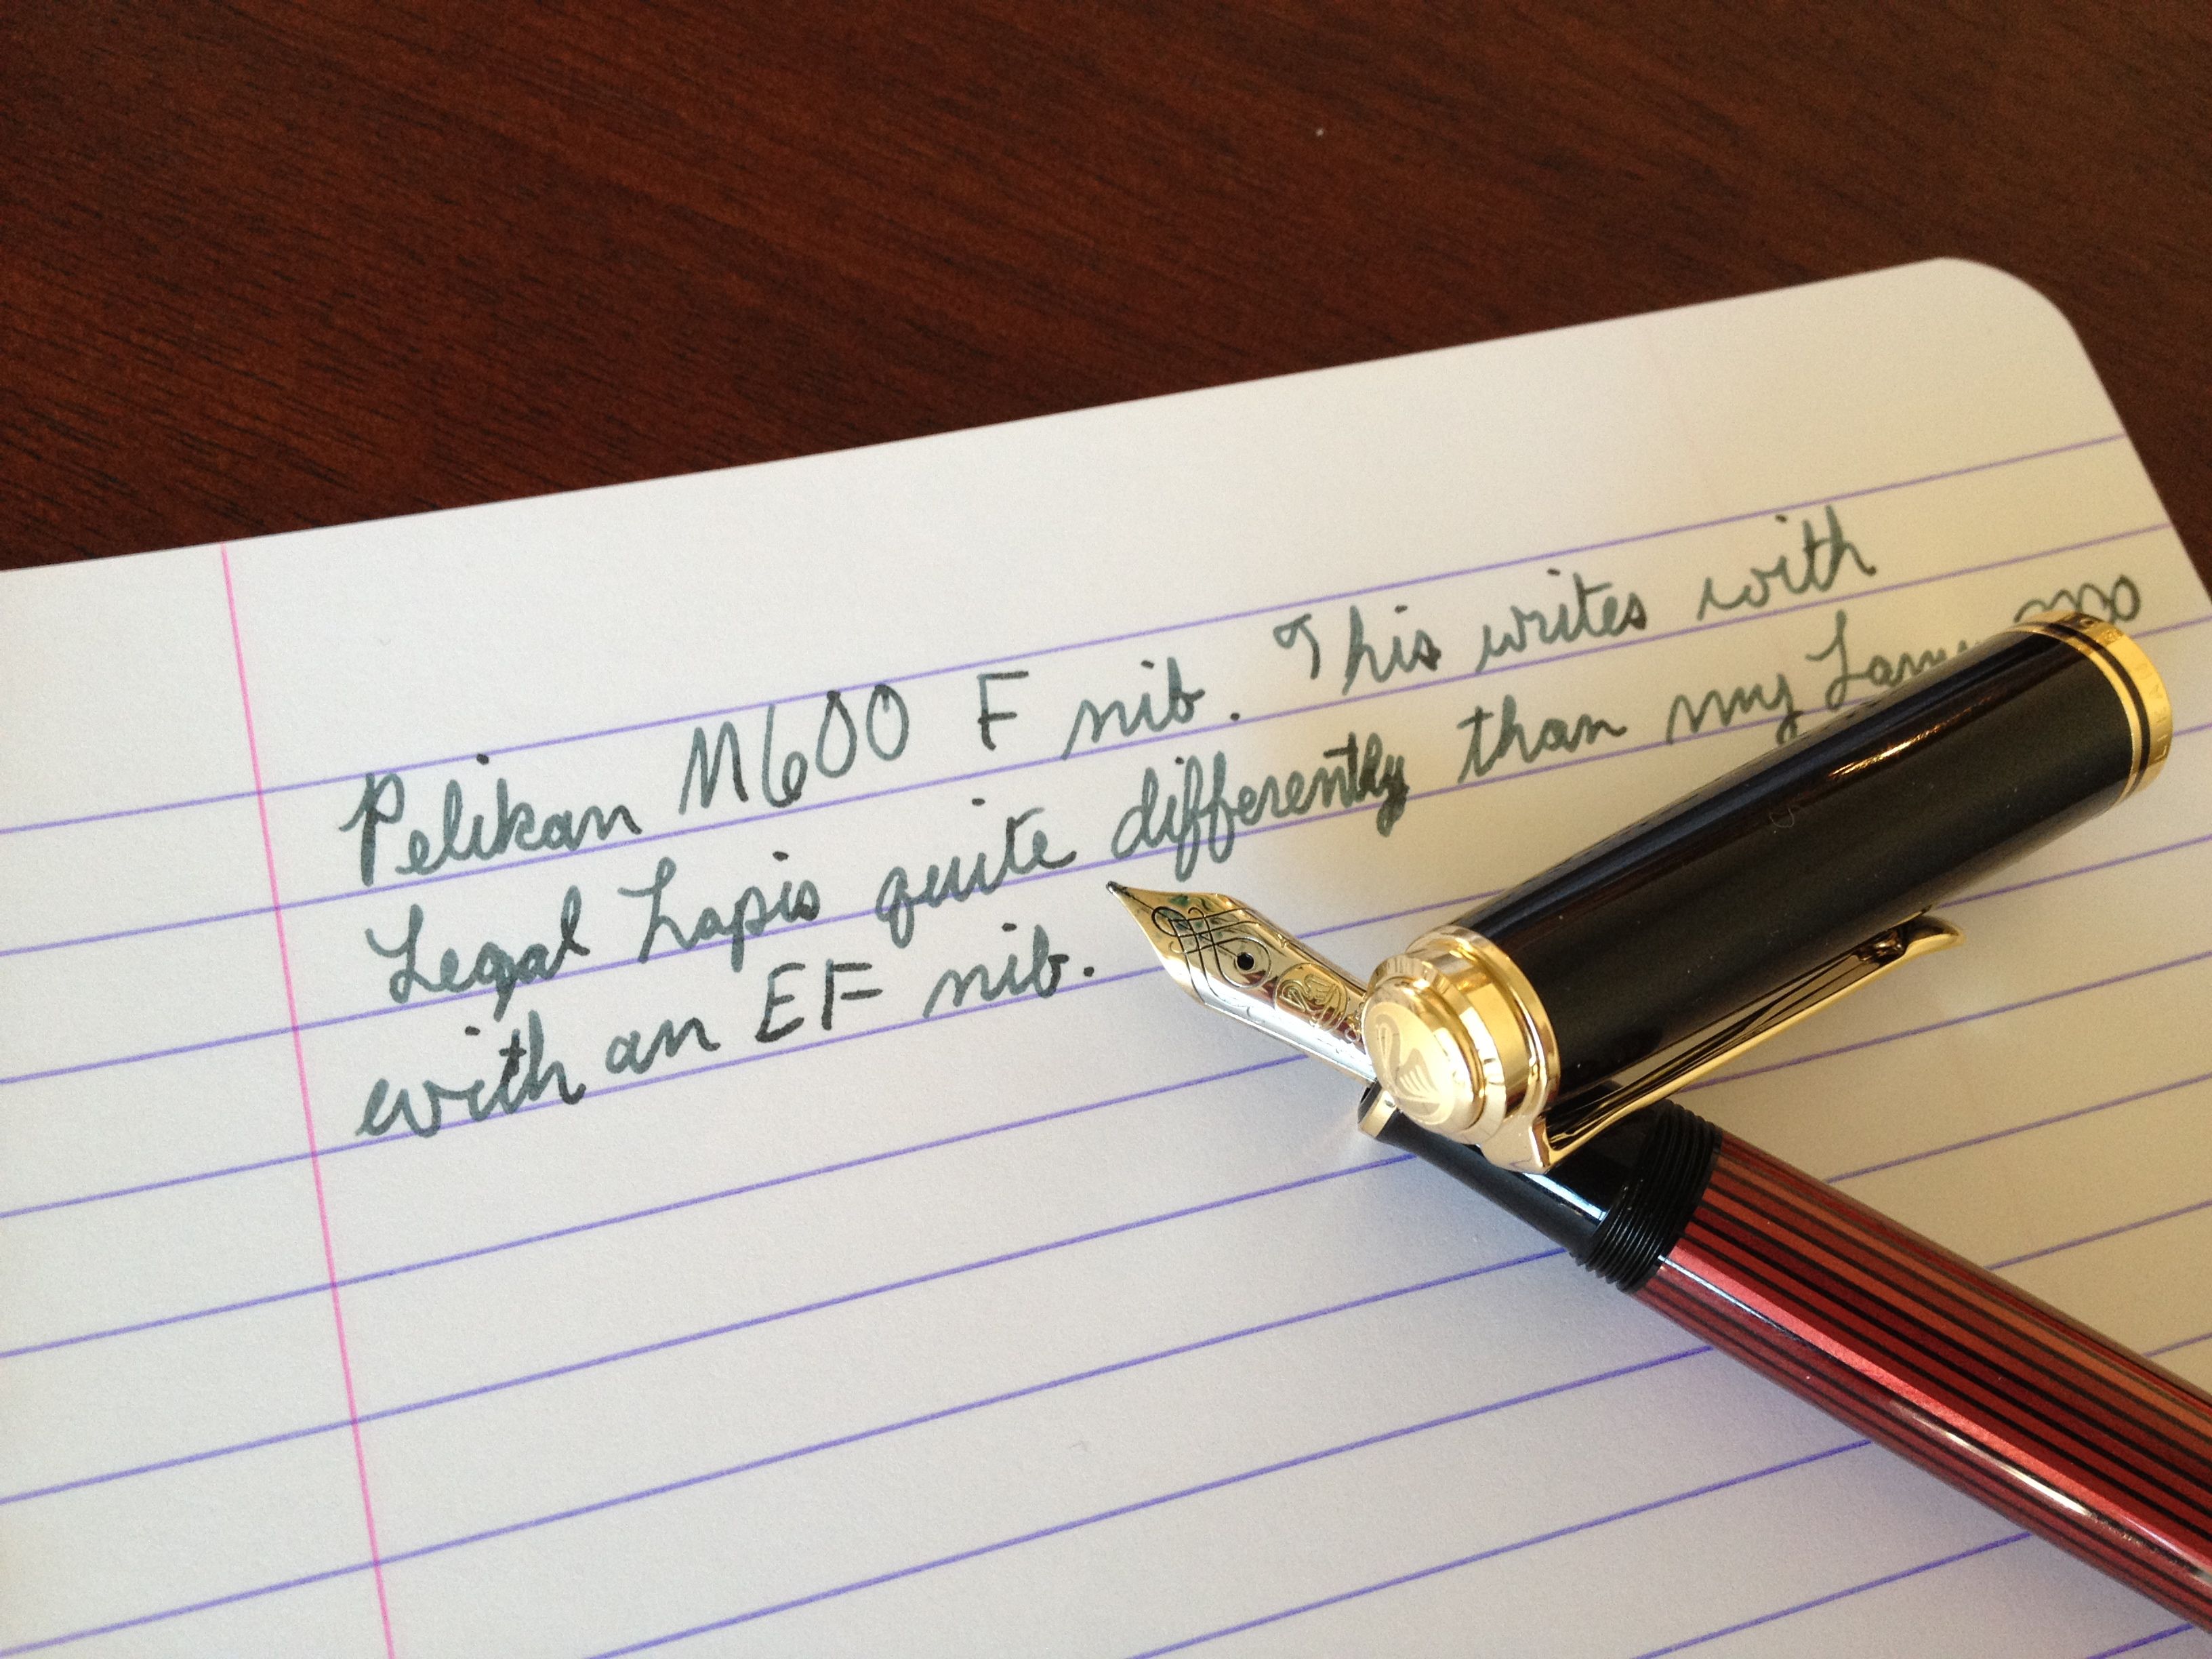 Pelikan M600 F nib. This writes with
Legal Lapis quite differently than my
with an EF nib.